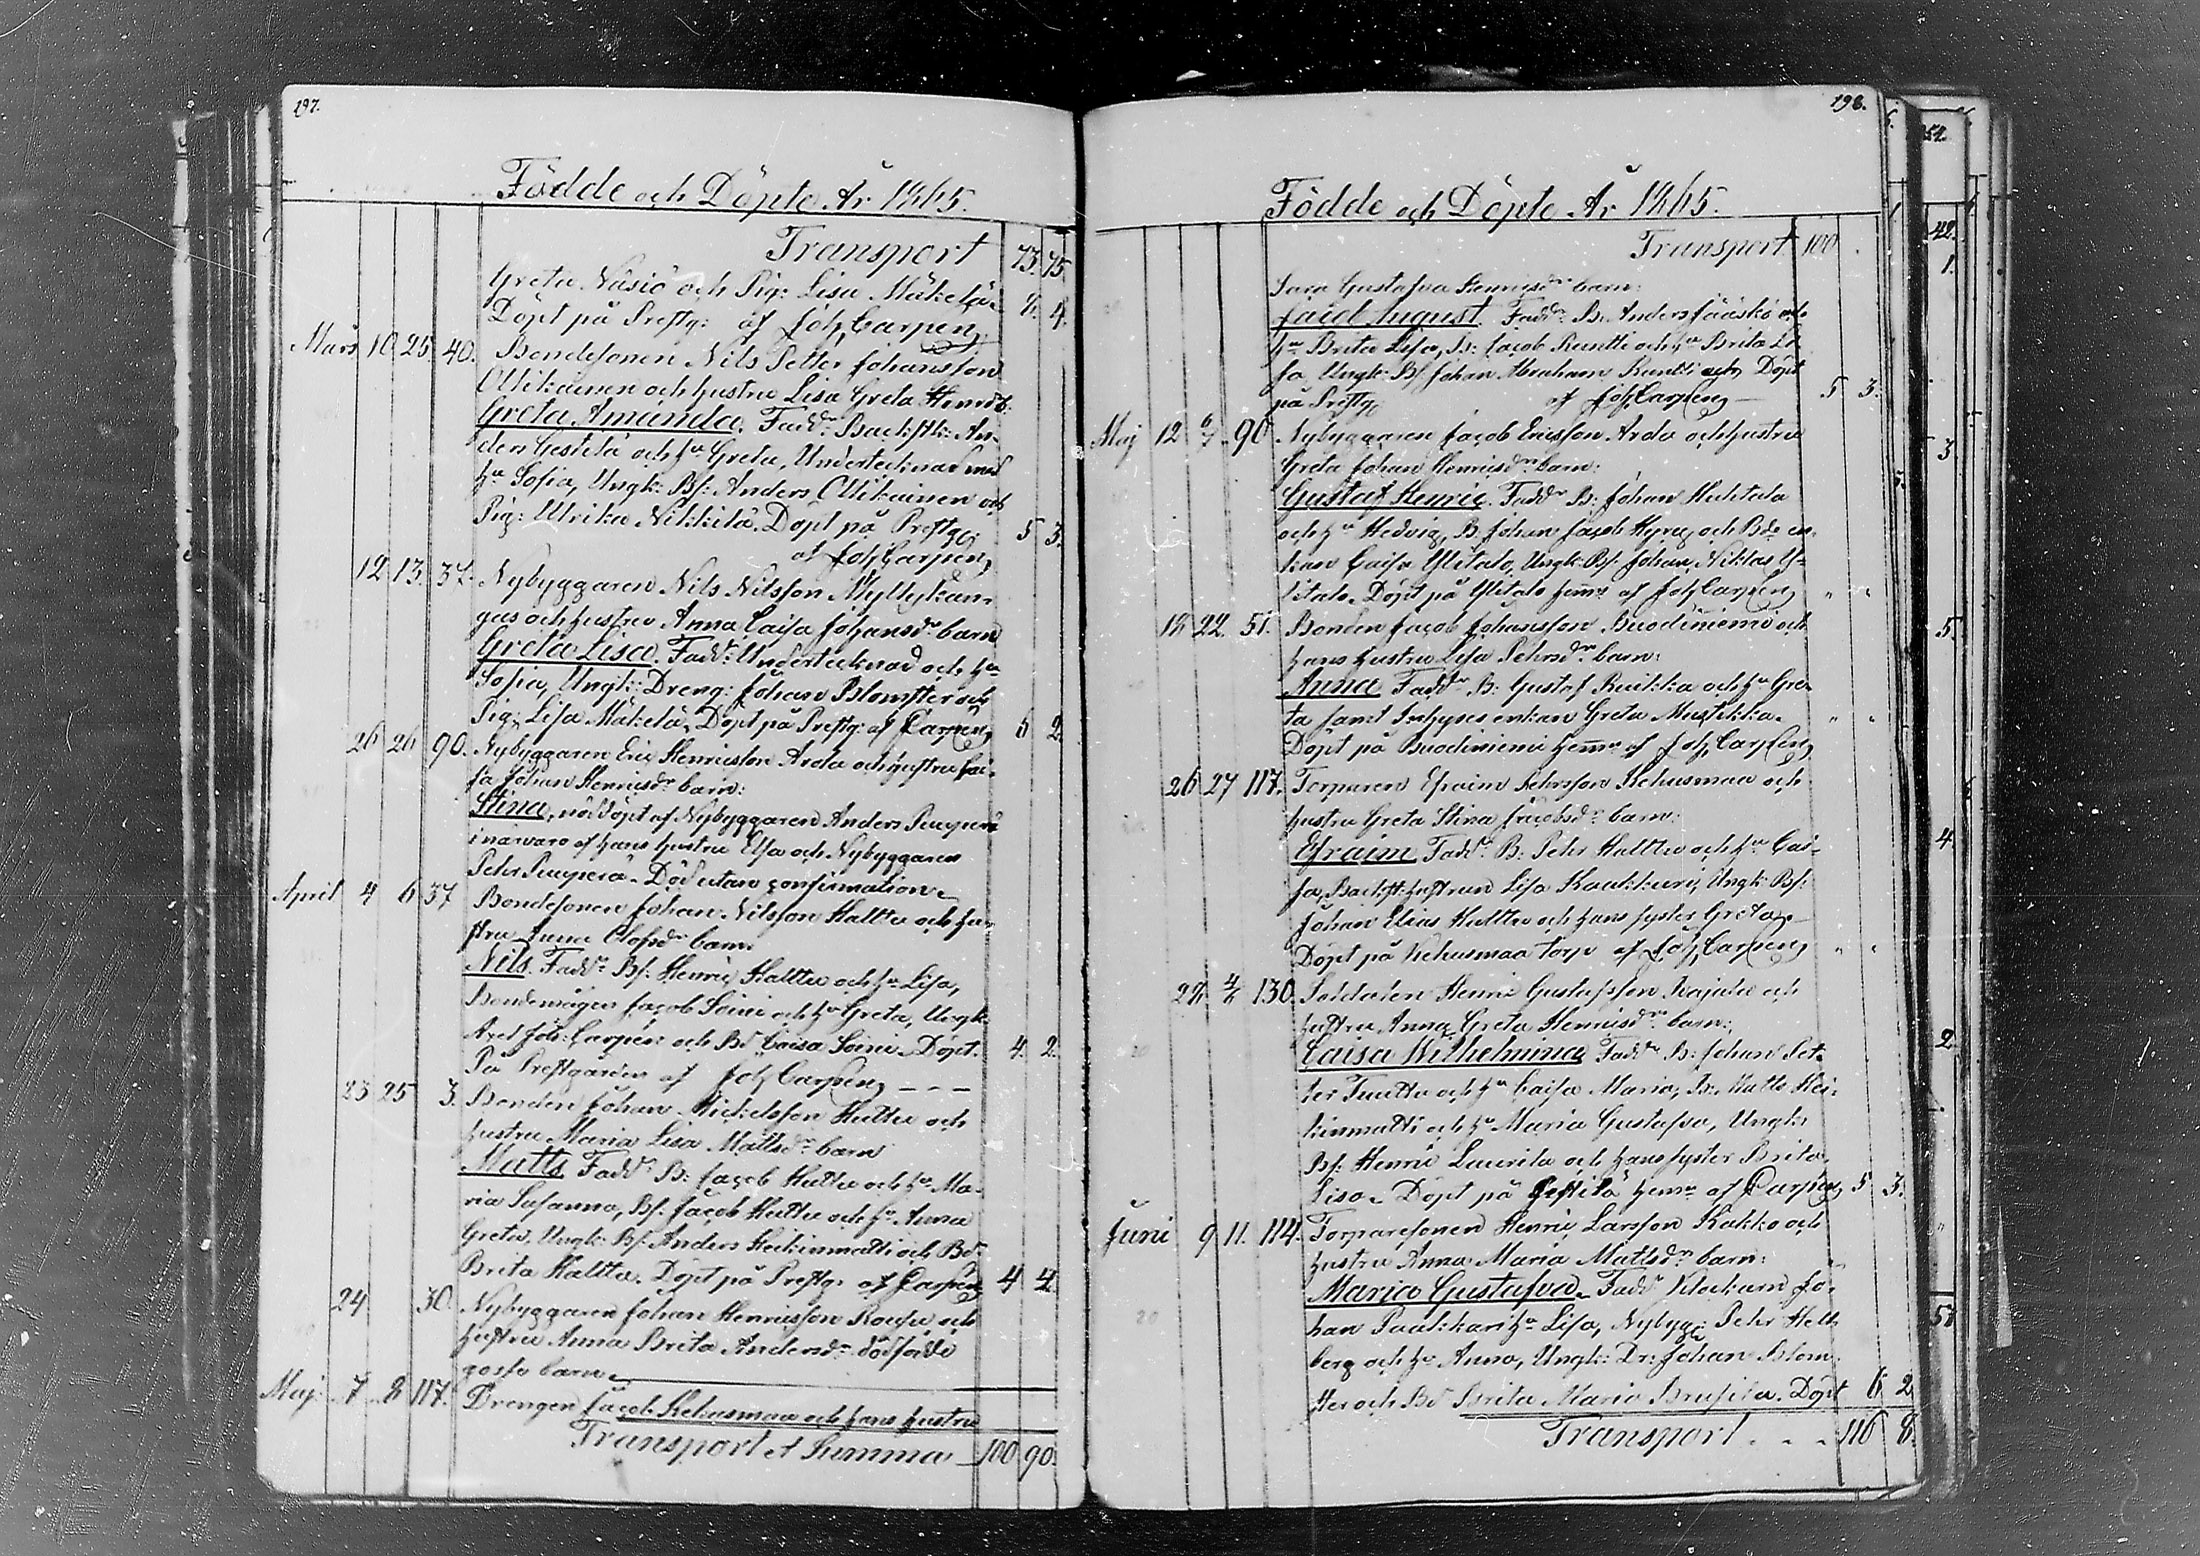 197.
Födde och Döpte År 1865.
Transport 73. 75
Greta Näsiö och Pig: Lisa Mäkelä.
Döpt på Prestg: af Joh Carpen 4.
Mars 10 25 40. Bondesonen Nils Petter Johansson
Ollikainen och hustru Lisa Greta Henrics:
Greta Amanda. Fadd: Backstk: An-
ders Gestilä och hu Greta, Undertecknad med
hu Sofia, Ungk: Bs: Anders Ollikainen och
Pig: Ulrika Nikkilä. Döpt på Prestg: 5 3.
af Joh Carpen
12 13. 37. Nybyggaren Nils Nilsson Myllykan-
gas och hustru Anna Caisa Johansdr barn
Greta Lisa. Faddr: Undertecknad och hu
Sofia, Ungk: Dreng: Johan Blomster och
Pig: Lisa Mäkelä. Döpt på Prestg: af Carpen 2
26 26 90. Nybyggaren Eric Henricsson Arola och hustru Cai-
sa Johan Henricsdr barn:
Stina, nöddöpt af Nybyggaren Anders
i närvaro af hans hustru Elsa och Nybyggaren
Pehr Död utan confirmation.
April 4 6 37 Bondesonen Johan Nilsson Halttu och hu-
stru Anna Olofsdr barn
Nils. Faddr Bs: Henric Halttu och hu Lisa,
Bondemågen Jacob Soini och hu Greta, Ungk:
Axel Joh: Carpén och Bd Caisa Soini. Döpt. 4. 2.
På Prestgården af Joh Carpen - - -
23 25 3. Bonden Johan Mickelsson Huttu och
hustru Maria Lisa Mattsdr barn
Matts. Faddr B: Jacob Huttu och hu Ma-
ria Susanna, Bs: Jacob Huttu och hu Anna
Greta. Ungk: Bs: Anders Heikinmatti och Bd
Brita Halttu. Döpt på Prestg: af Carpen 4 4
24 30. Nybyggaren Johan Henricsson Rousu och
hustru Anna Brita Andersdr dödfödde
gosse barn.
Maj: 7 8 117. Drengen Jacob Kehusmaa och hans hustru
Transport et Summa 100 90.
198.
Födde och Döpte År 1865.
Transport 100.
Sara Gustafva Henricsdr barn:
Jacob August. Faddr B: Anders Jääskö och
hu Brita Lisa, B: Jacob Runtti och hu Brita Li-
sa Ungk: Bs: Johan Abraham Runtti och Döpt
på Prestg. af Joh Carpen 5 3.
Maj 12 90 Nybyggaren Jacob Ericsson Arola och hustru
Greta Johan Henricsdr barn:
Gustaf Henric. Faddr B: Johan Huhtala
och hu Hedvig, B: Johan Jacob Hyry och Bde en-
kan Caisa Ylitalo, Ungk: Bs: Johan Niklas Y-
litalo. Döpt på Ylitalo hemn af Joh Carpen " "
18 22. 51. Bonden Jacob Johansson Buodiniemi och
hans hustru Lisa Pehrsdr barn:
Anna Faddr B: Gustaf Ruikka och hu Gre-
ta samt Inhyses enkan Greta Mustikka. " "
Döpt på Buodiniemi hemn af Joh Carpen
26 27 117. Torparen Efraim Pehrsson Kehusmaa och
hustru Greta Stina Jacobsdr barn:
Efraim Faddr B: Pehr Halttu och hu Cai-
sa, Backst: hustrun Lisa Kaukkuri, Ungk: Bs:
Johan Elias Halttu och hans syster Greta.
Döpt på Kehusmaa torp af Joh Carpen " "
28 130. Soldaten Henric Gustafsson Kajula och
hustru Anna Greta Henricsdr barn:
Caisa Wilhelmina Faddr B: Johan Pet-
ter Tuuttu och hu Caisa Maria, B: Matts Hei-
kinmatti och hu Maria Gustafva, Ungk:
Bs: Henric Laurila och hans syster Brita
Lisa. Döpt på Gestilä hemn af Carpen 5 3.
Juni 9 11. 114. Torparesonen Henric Larsson Kakko och
hustru Anna Maria Mattsdr barn:
Maria Gustafva. Faddr Klockarn Jo-
han Paakkari hu Lisa, Nybygg: Pehr Hell-
berg och hu Anna, Ungk: Dr: Johan Blom-
ster och Bd Brita Maria Brusila. Döpt 6 2
Transport . . . 116 8.